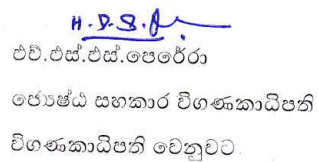 H.D.S.
එච්.එස්.එස්.පෙරේරා
ජ්‍යෙෂ්ඨ සහකාර විගණකාධිපති
විගණකාධිපති වෙනුවට